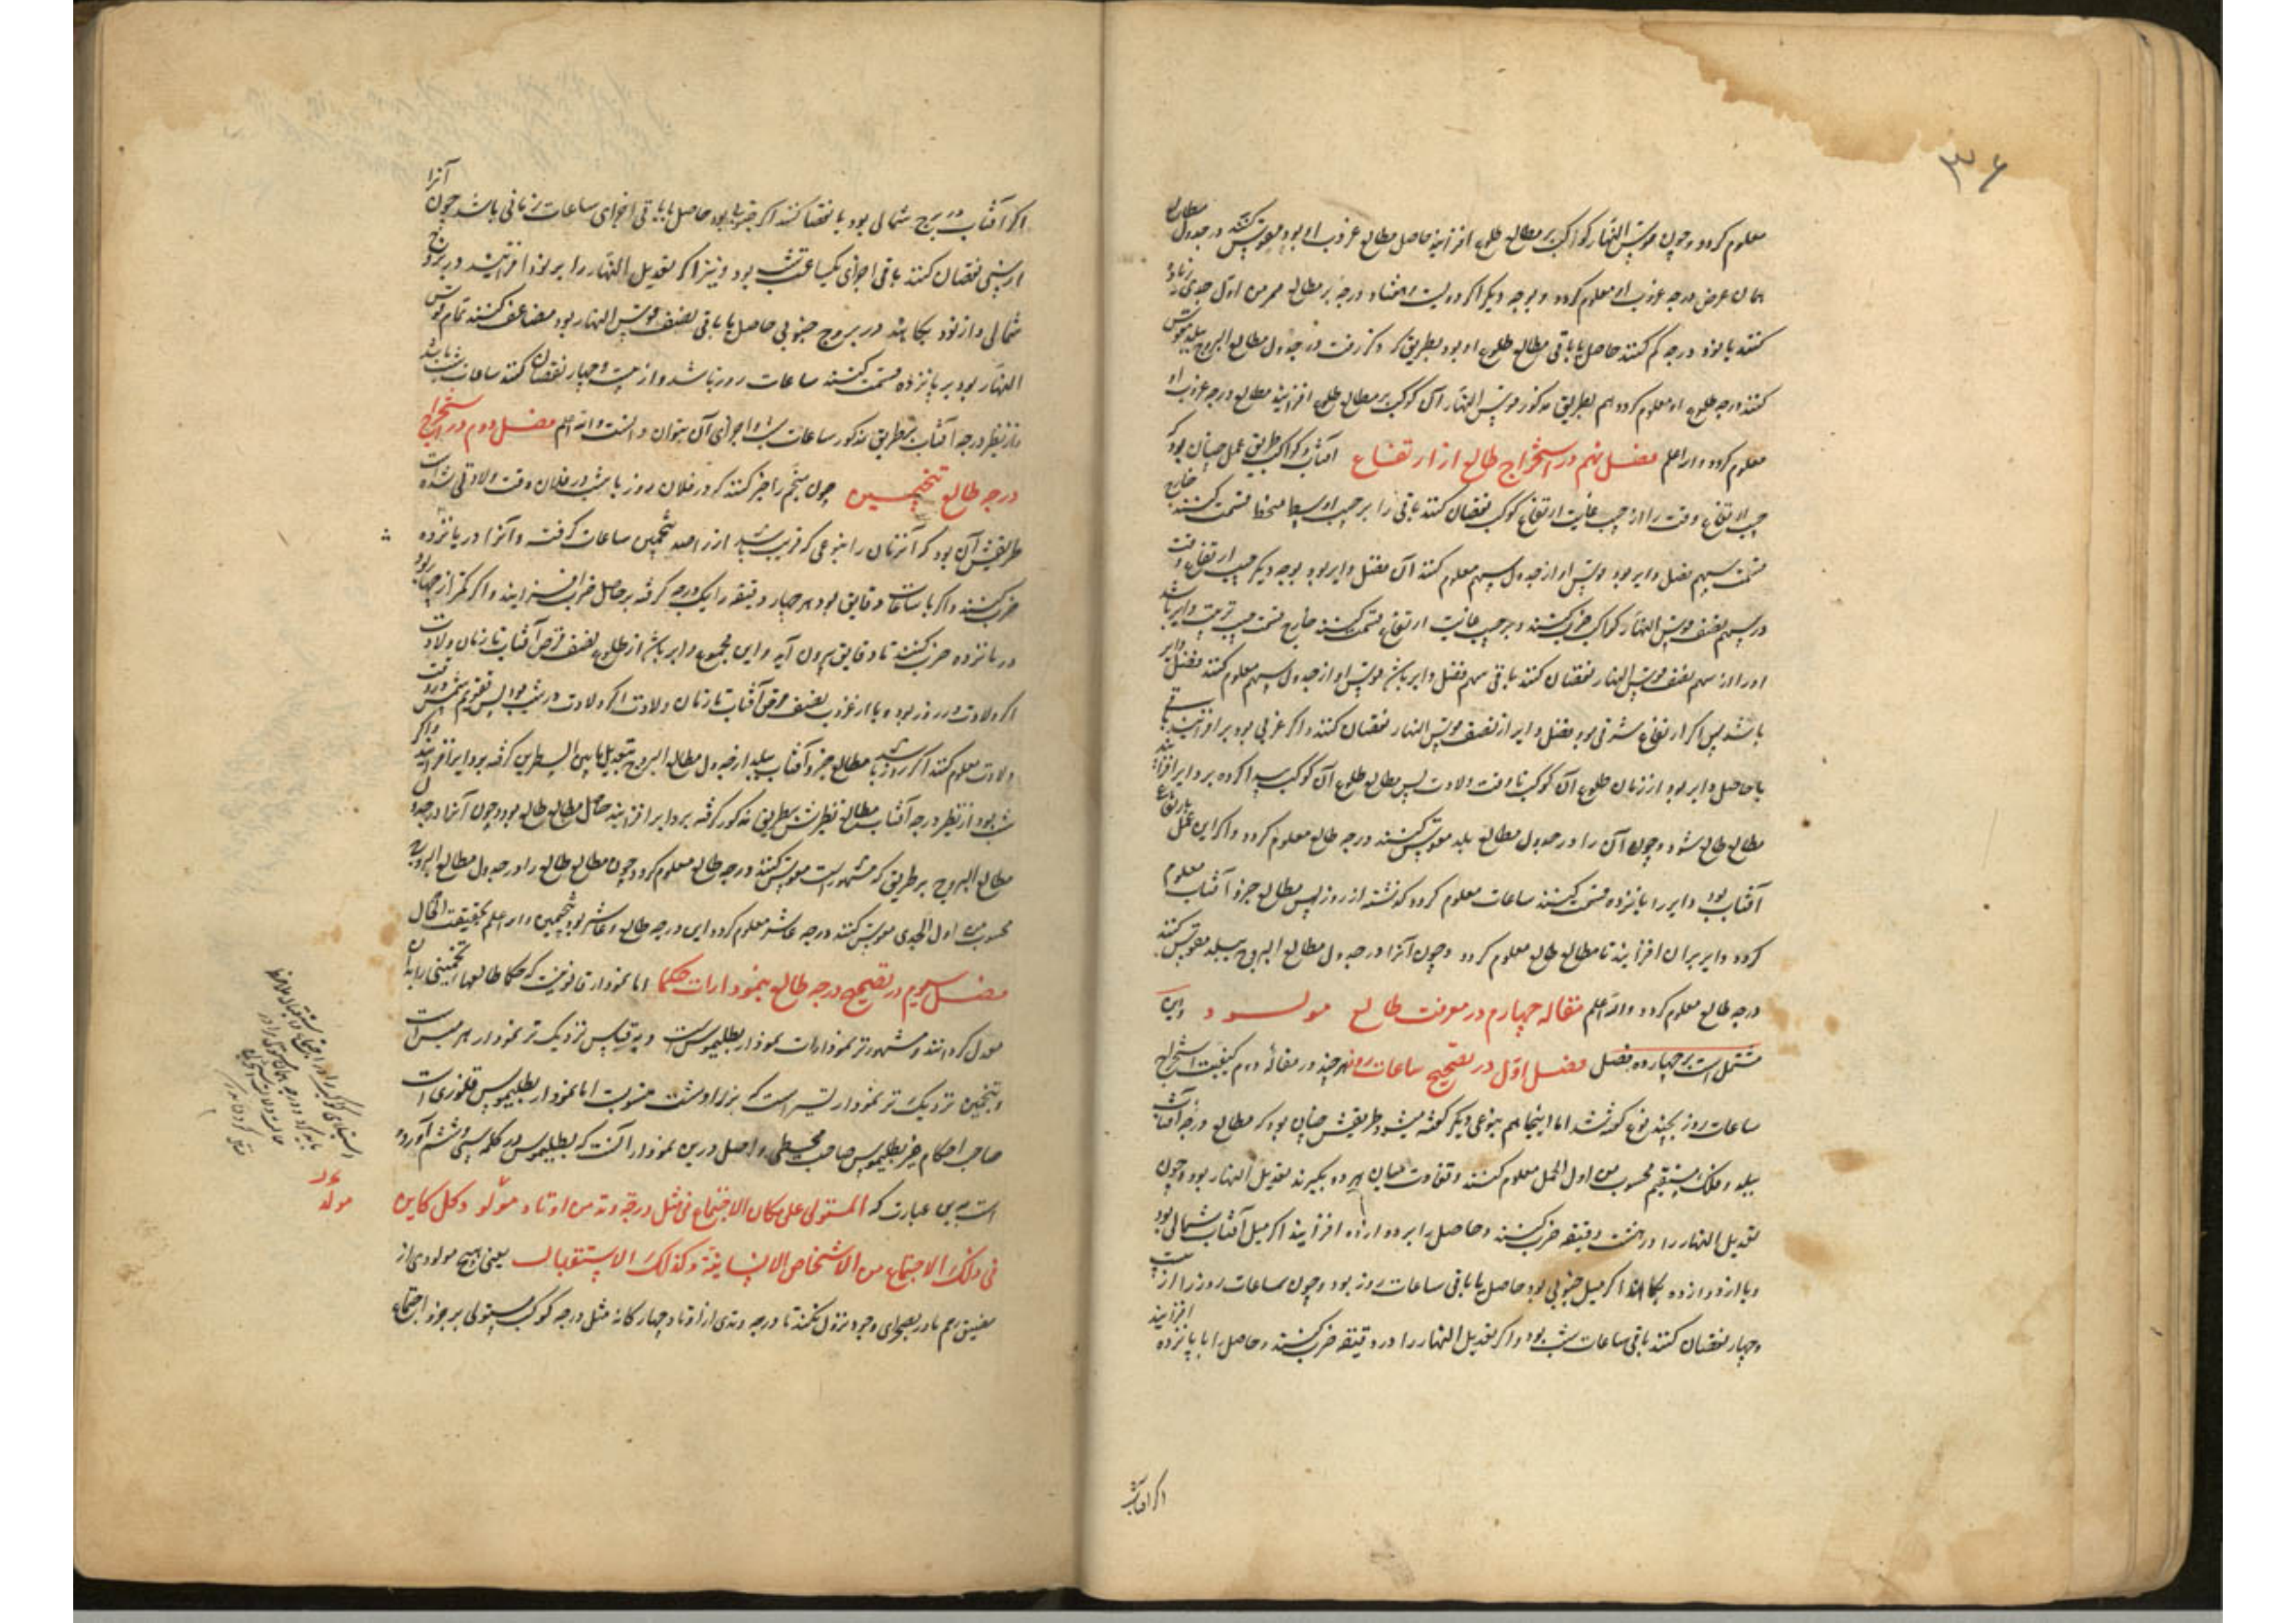 ۳۶
معلوم کردد و چون قوس النهار کواکب بر مطالع طلوع افزایند حاصل مطالع غروب او بود مقوس کنند در جدول مطالع
همان عرض درجه غروب او معلوم کردد و بوجه دیکر اکر دویست و هفتاد درجه بر مطالع ممر من اول جدی زیاده
کنند یا نود درجه کم کنند حاصل یا باقی مطالع طلوع او بود بطریق که ذکر رفت در جدول مطالع البروج بلد مقوس
کنند درجه طلوع او معلوم کردد هم بطریق مذکور قوس النهار آن کوکب بر مطالع طلوع افزایند مطالع درجه غروب او
معلوم کردد والله اعلم فصل نهم در استخراج طالع از ارتفاع آفتاب و کواکب طریق عمل چنان بود که
جیب ارتفاع وقت را از جیب غایت ارتفاع کوکب نقصان کنند باقی را بر جیب اوسط منحطا قسمت کنند خارج
قسمت سهم فضل دایر بود قوس او از جدول سهم معلوم کنند آن فضل دایر بود بوجه دیکر جیب ارتفاع وقت
در سهم نصف قوس النهار کواکب ضرب کنند و بر جیب غایت ارتفاع قسمت کنند خارج قسمت جیب ترتیب دایر باشد
اورا از سهم نصف قوس النهار نقصان کنند باقی سهم فضل دایر باشد قوس او از جدول سهم معلوم کنند فضل دایر
باشد پس اکر ارتفاع شرقی بود فضل دایر از نصف قوس النهار نقصان کنند و اکر غربی بود بر او افزایند باقی
یا حاصل دایر بود از زمان طلوع آن کوکب تا وقت ولادت پس مطالع طلوع آن کوکب پیدا کرده بر دایر افزایند
مطالع طالع شود و چون آن را در جدول مطالع بلد مقوس کنند درجه طالع معلوم کردد و اکر این عمل بارتفاع
آفتاب بود دایر را بپانزده قسمت کنند ساعات معلوم کردد کذشته از روز پس مطالع جزو آفتاب معلوم
کرده دایر بر آن افزایند تا مطالع طالع معلوم کردد و چون آنرا در جدول مطالع البروج ببلد مقوس کنند
درجه طالع معلوم کردد والله اعلم مقاله چهارم در معرفت طالع مولود و این
مشتمل است بر چهارده فصل فصل اول در تصحیح ساعات روز هر چند در مقاله دوم کیفیت استخراج
ساعات روز بچند نوع کفته شد اما اینجا هم بنوعی دیکر کفته میشود طریقش چنان بود که مطالع درجه آفتاب
ببلد و فلک مستقیم محسوب من اول الحمل معلوم کنند و تفاوت میان هر دو بکیرند تعدیل النهار بود و چون
تعدیل النهار را در هشت دقیقه ضرب کنند و حاصل را بر دوازده افزایند اکر میل آفتاب شمالی بود
و یا از دوازده بکاهند اکر میل جنوبی بود حاصل یا باقی ساعات روز بود و چون ساعات روز را از بیست
و چهار نقصان کنند باقی ساعات شب بود و اکر تعدیل النهار را در دقیقه ضرب کنند و حاصل را با پانزده افزایند
اکر آفتاب
اکر آفتاب در برج شمالی بود یا نقصان کنند اکر جنوبی بود حاصل یا باقی اجزای ساعات زمانی باشد چون آنرا
از سی نقصان کنند باقی اجزای یکساعت شب بود و نیز اکر تعدیل النهار را بر نود افزایند در بروج
شمالی و از نود بکاهند در بروج جنوبی حاصل یا باقی نصف قوس النهار بود مضاعف کنند تمام قوس
النهار بود بر پانزده قسمت کنند ساعات روز باشد و از بیست و چهار نقصان کنند ساعات شب باشد
و از نظیر درجه آفتاب بطریق مذکور ساعات شب و اجزای آن بتوان دانست والله اعلم فصل دوم در استخراج
درجه طالع تخمین چون منجم را خبر کنند که در فلان روز یا شب در فلان وقت ولادتی شده است
طریقش آن بود که آن زمان را بنوعی که قریب باشد از رصد تخمین ساعات کرفته و آنرا در پانزده
ضرب کنند و اکر با ساعات دقایق بود هر چهار دقیقه را یک درجه کرفته بر حاصل ضرب افزایند و اکر کمتر از چهار بود
در پانزده ضرب کنند تا دقایق بیرون آید و این مجموع دایر باشد از طلوع نصف قرص آفتاب تا زمان ولادت
اکر ولادت در روز بود و یا از غروب نصف قرص آفتاب تا زمان ولادت اکر ولادت در شب بود پس تقویم شمس در وقت
ولادت معلوم کنند اکر روز باشد مطالع جزو آفتاب ببلد از جدول مطالع البروج بتعدیل ما بین السطرین کرفته بر دایر افزایند و اکر
شب بود از نظیر درجه آفتاب مطالع نظیرش بطریق مذکور کرفته بر دایر افزایند حاصل مطالع طالع بود و چون آنرا در جدول
مطالع البروج بر طریق که مشهور است مقوس کنند درجه طالع معلوم کردد و چون مطالع طالع را در جدول مطالع البروج
محسوب من اول الجدی مقوس کنند درجه عاشر معلوم کردد این درجه طالع و عاشر بود بتخمین والله اعلم بحقیقت الحال
فصل سیوم در تصحیح درجه طالع بنمودارات حکما اما نمودار قانونیست که حکما طالعهاء تخمینی را بدان
معدل کردانند و مشهورتر نمودارات نمودار بطلیموس است و بقیاس نزدیک تر نمودار هرمس است
و بتخمین نزدیک تر نموداریست که بزرادشت منسوب اما نمودار بطلیموس قلوذی است
صاحب احکام غیر بطلیموس صاحب مجسطی و اصل درین نمودار آنست که بطلیموس در کلمه سی و ششم آورده
است بدین عبارت که المستولی علی مکان الاجتماع فی مثل درجة وتد من اوتاد مولد و کل کاین
فی ذلک الاجتماع من الاشخاص الانسانیة و کذلک الاستقبال یعنی هیچ مولودی از
مضیق رحم مادر بصحرای وجود نزول نکند تا درجه وتدی از اوتاد چهار کانه مثل درجه کوکب مستولی بر جزو اجتماع
مولد